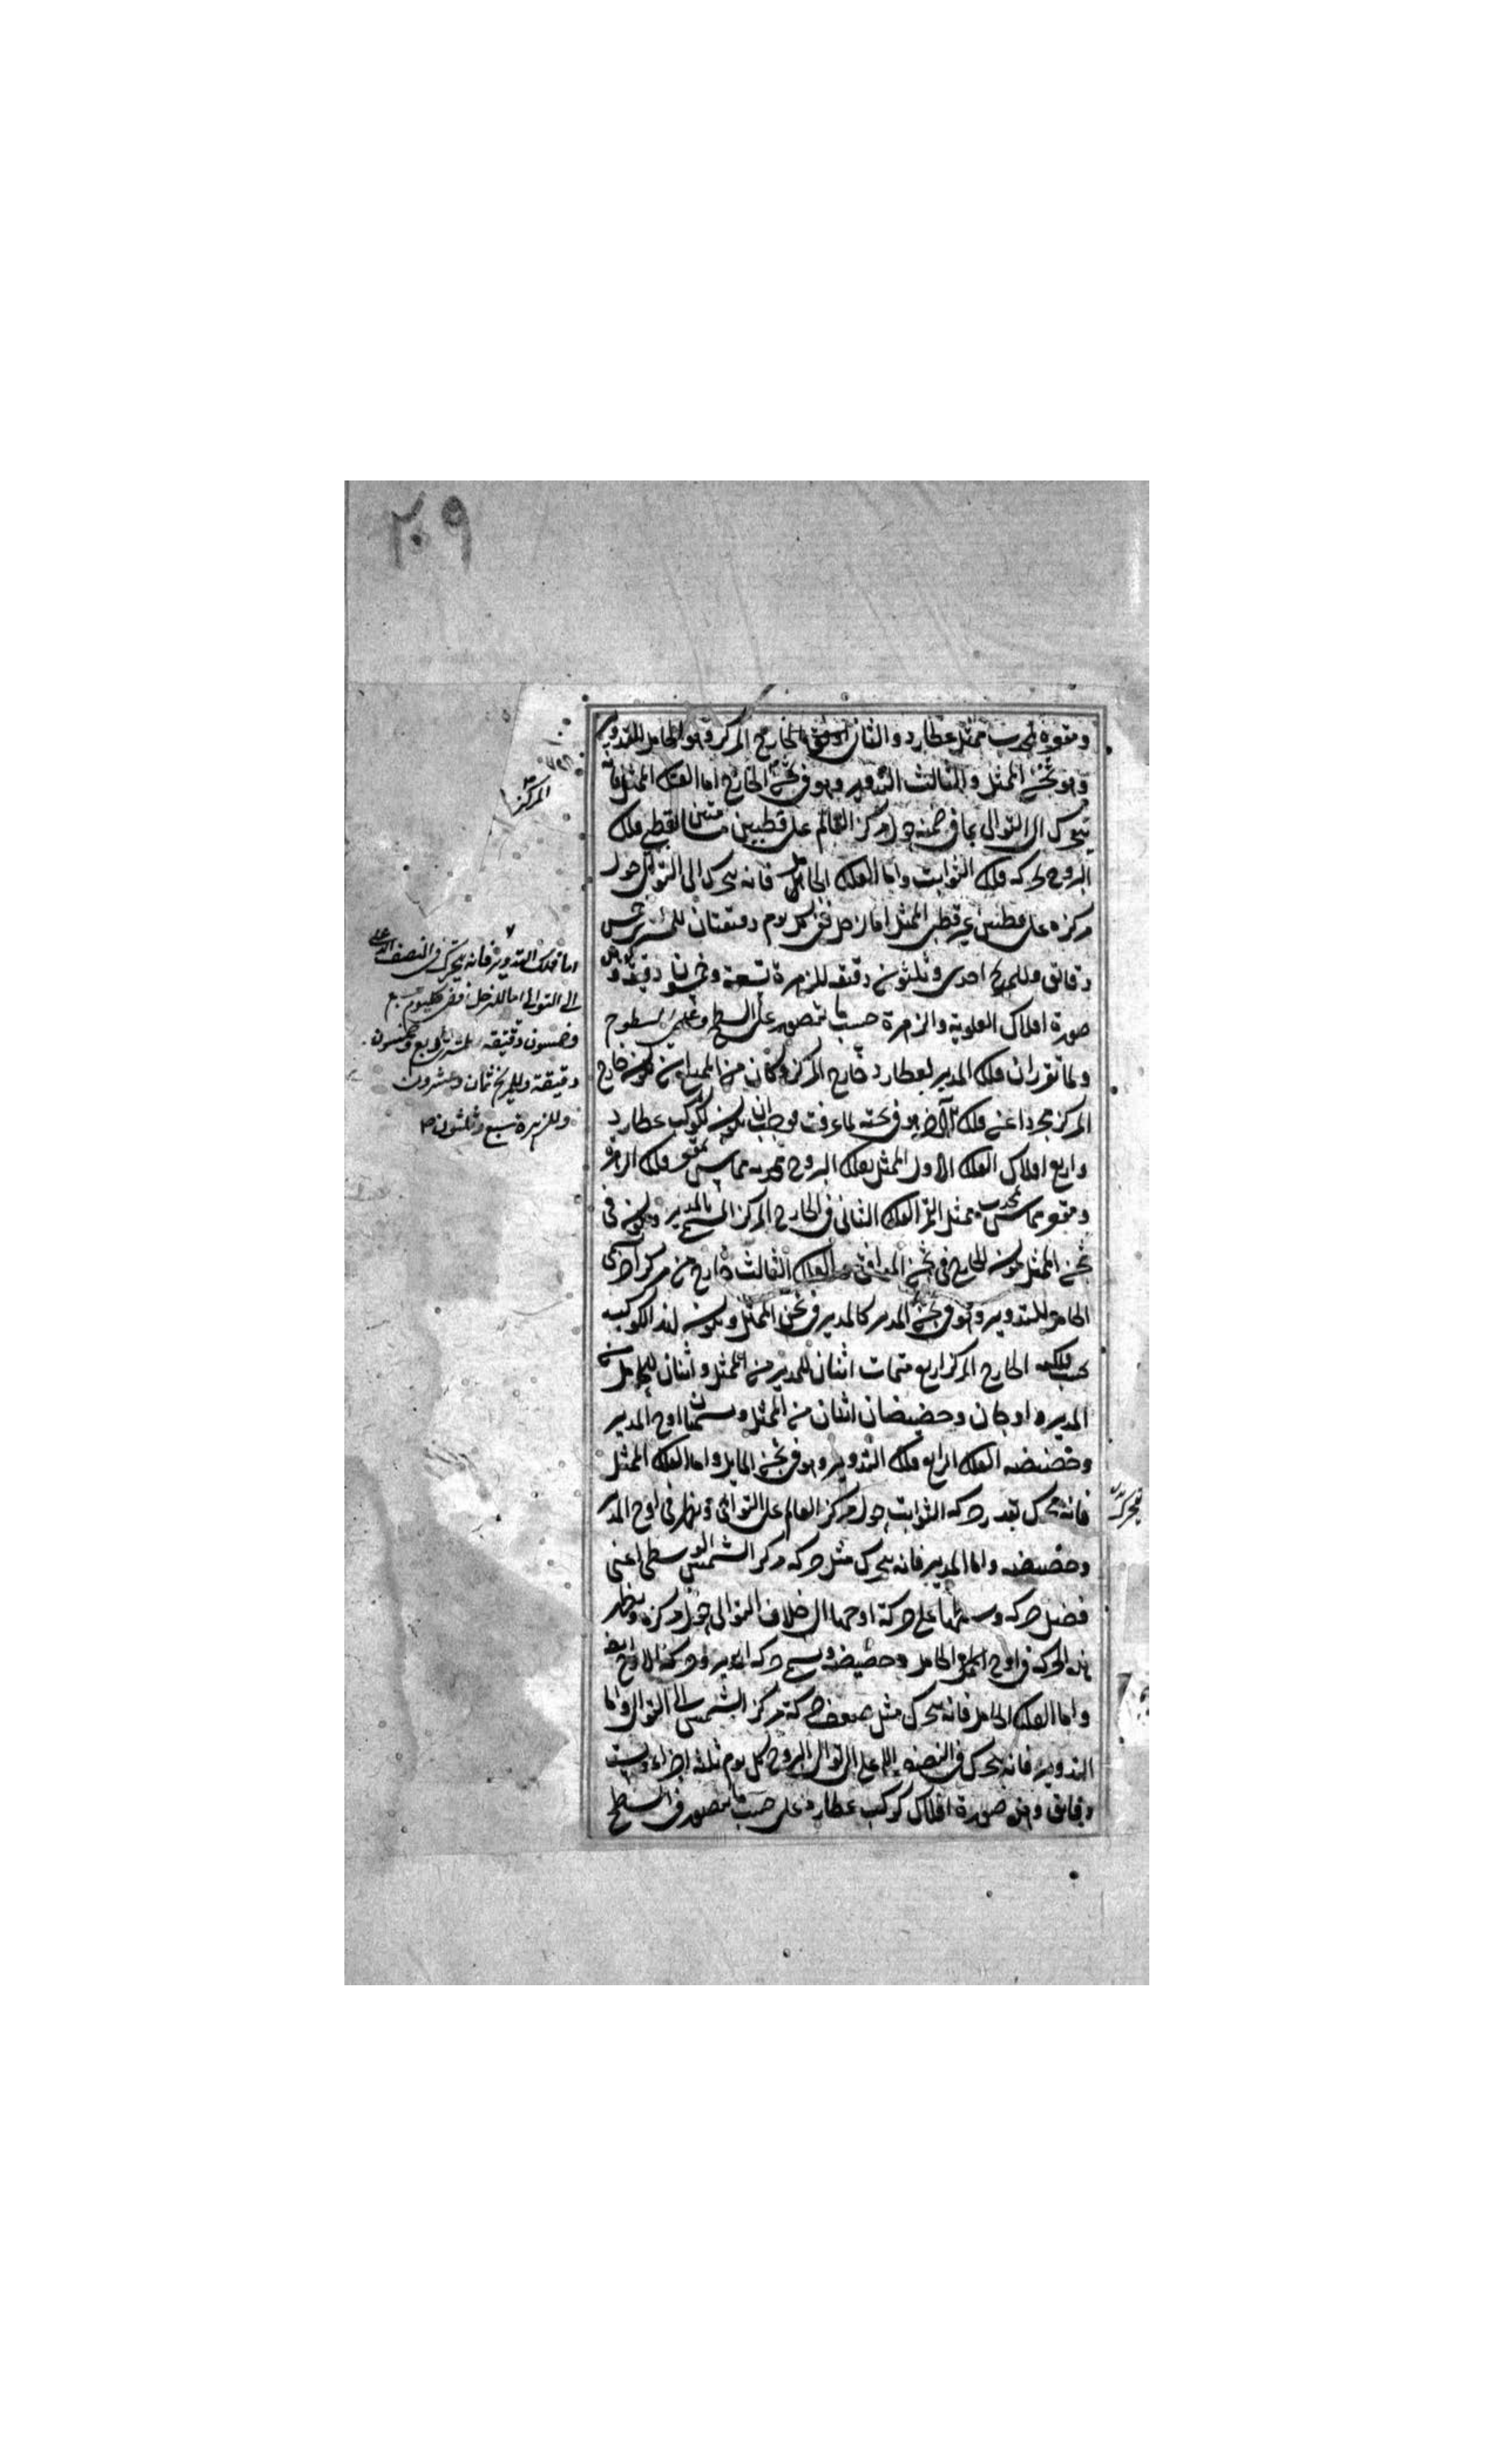 ٢٠٩
ومقعره لمحدب ممثل عطارد والثانی الخارج المركز وهو الحامل للتدوير
وهو فی ثخن الممثل والثالث التدوير وهو فی ثخن الخارج اما الفلك الممثل فانه
يتحرك الی التوالی بما فی ضمنه حول مركز العالم علی قطبين لقطبی فلك
البروج كحركة فلك الثوابت واما الفلك الحامل فانه يتحرك الی التوالی حول
مركزه علی قطبين غير قطبی الممثل اما زحل ففی كل يوم دقيقتان للمشتری خمس
دقائق وللمريخ احدی وثلثون دقيقه للزهرة تسعة وخمسون دقيقه و
صورة افلاك العلوية والزهرة حسب ما تتصور علی السطح وعلی السطوح
ولما تقرر ان فلك المدير لعطارد خارج المركز وكان من كونه خارج
المركز مجردا عن فلك هو فی ثخنه لما عرفت فوجب ان يكون لكوكب عطارد
واربع افلاك الفلك الاول الممثل بفلك البروج محدبه مماس بمقعر فلك الزهرة
ومقعره مماس بمحدب ممثل القمر الفلك الثانی فی الخارج المركز المسمی بالمدير ويكون فی
ثخن الممثل كون الخارج فی ثخن الموافق والفلك الثالث خارج من مركز آخر يسمی
الحامل للتدوير وهو فی ثخن المدير كالمدير فی ثخن الممثل ويكون لهذا الكوكب
بحسب فلكيه الخارج المركز اربع متممات اثنان للمدير من الممثل واثنان للحامل من
المدير و اوجان وحضيضان اثنان من الممثل ويسميان اوج المدير
وحضيضه الفلك الرابع فلك التدوير وهو فی ثخن الحامل واما الفلك الممثل
فانه يتحرك بقدر حركة الثوابت حول مركز العالم علی التوالی ويظهر فی اوج المدير
وحضيضه واما المدير فانه يتحرك مثل حركة مركز الشمس الوسطی اعنی
فضل حركة وسطها علی حركة اوجها الی خلاف التوالی حول مركزه ويظهر
هذه الحركة فی اوج الحامل وحضيضه ويسمی حركة المدير وحركة الاوج ايضا
واما الفلك الحامل فانه يتحرك مثل ضعف حركة مركز الشمس الی التوالی واما
التدوير فانه يتحرك فی النصف الاعلی الی توالی البروج كل يوم ثلثة اجزاء وست
دقائق وهذه صورة افلاك كوكب عطارد علی حسب ما تتصور فی السطح
المركز
اما فلك التدوير فانه يتحرك فی النصف الاعلی
الی التوالی اما للزحل ففی كل يوم سبع
وخمسون دقيقه للمشتری اربع وخمسون
دقيقة وللمريخ ثمان وعشرون
وللزهرة سبع وثلثون